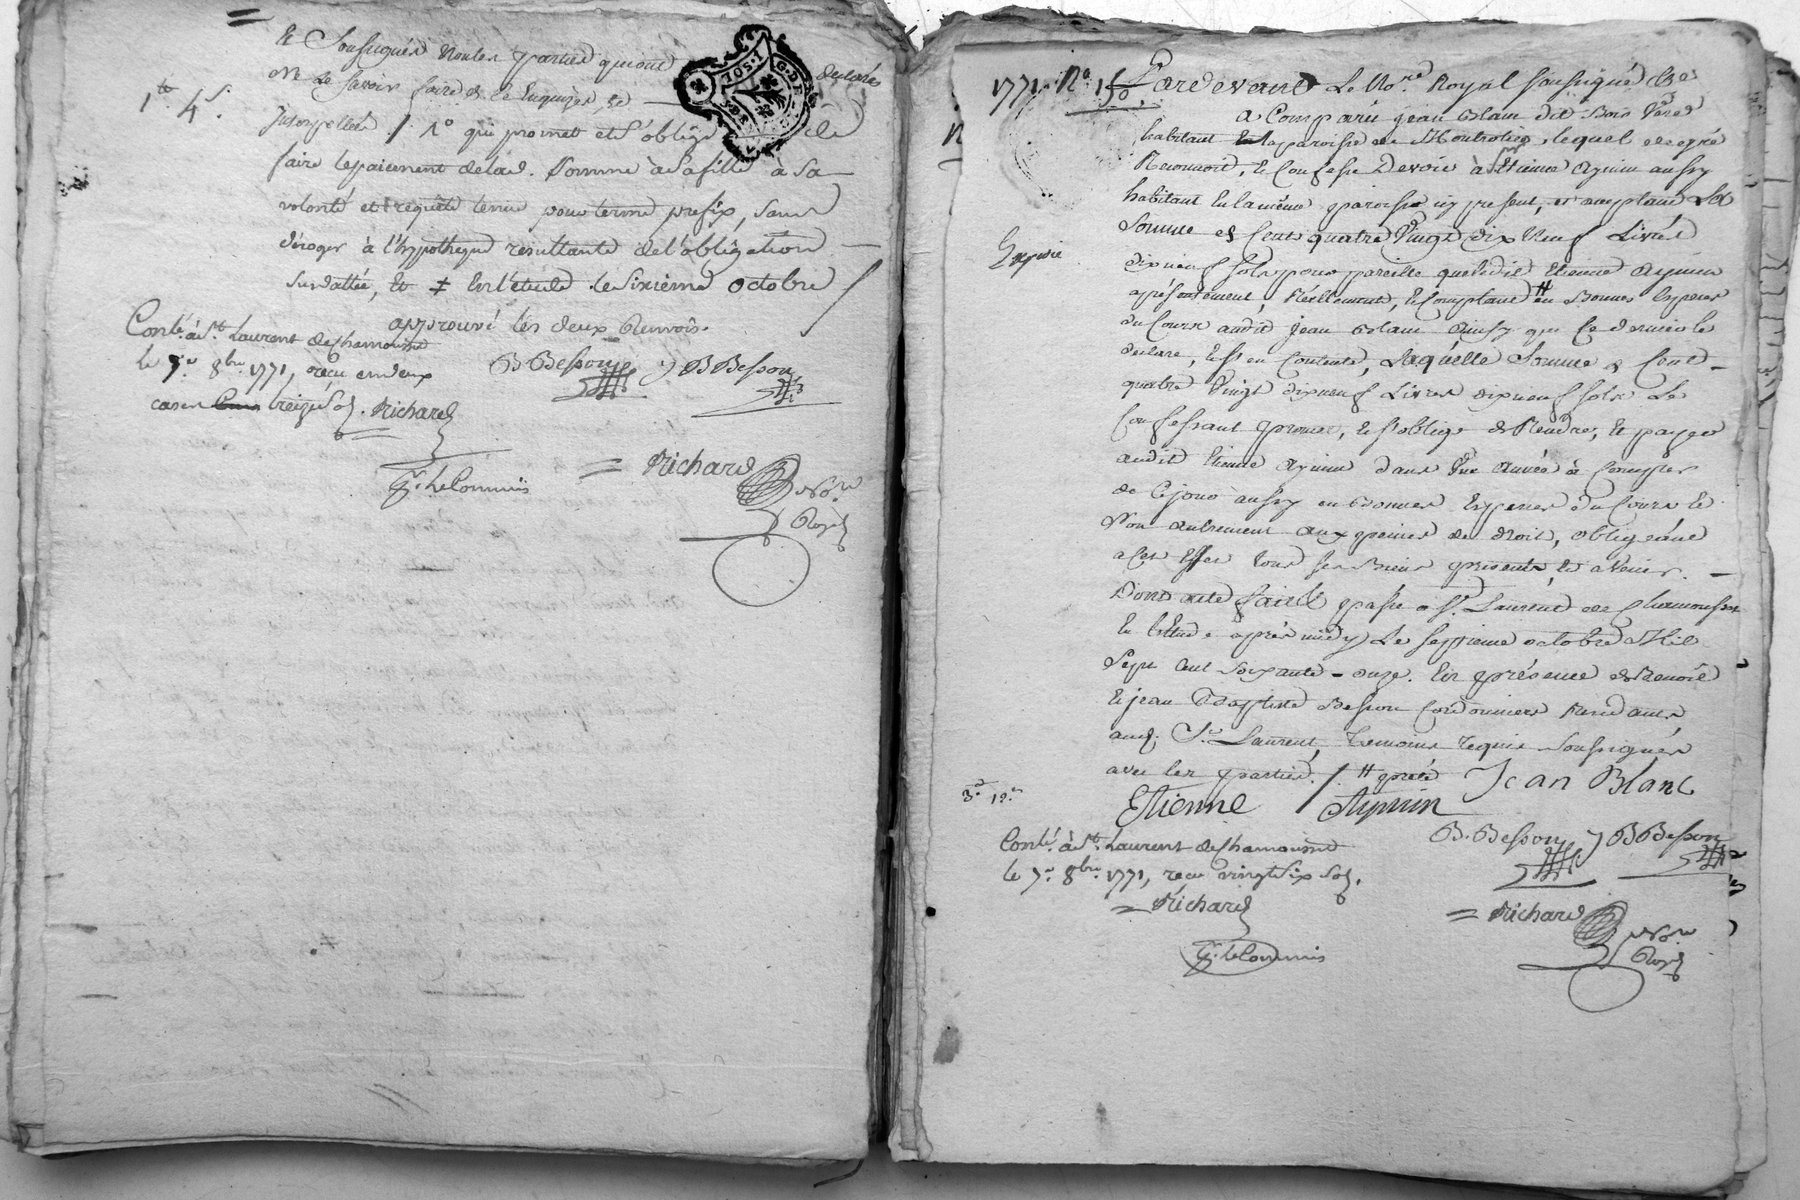 et soussignés nonles parties qui ont
declaré
ne le savoir faire de ce enquises, de
1tt 4s.
Interpellés / 1o qui promet et s'oblige de
faire le paiement delad. somme à sa fille à sa
volonté et requête tenue pour terme prefix, sans
déroger à l'hypotheque resultante de l'obligation
surdattée, et ≠ en l'étude le sixième octobre /
approuvé les deux renvois.
Conté. à St. Laurent dechamousset
le 7e. 8bre. 1771, recu en deux
cases treize sols. Richard
pr. le Commis
B Besson J B Besson
= Richard
Nore
Royal
1771 No. 150. Pardevant Le Nore. Royal soussigné &a
a Comparu jean Blanc dit Bois
habitant la paroisse de Montrotier, lequel de gré
Reconnoit, et Confesse Devoir à Etienne Aymin aussy
habitant en la même paroisse icy present, et acceptant La
Somme de Cent quatre Vingt dix neuf Livres
Expedié
dix neuf sols pour pareille que ledit Etienne Aymin
a présentement, réellement, et comptant # en Bonnes Especes
du Cours audit jean Blanc Ainsy que Ce dernier le
declare, et est en Contente, Laquelle Somme de Cent
quatre Vingt dix neuf Livres dix neuf sols Le
Confessant promet, et s'oblige de Rendre, et payer
audit Etienne Aymin dans Une Année à Compter
de Ce jour aussy en Bonnes Especes du Cours et
Non autrement aux peines de droit, obligeant
a cet Effet tous ses Biens presents, et avenir.
Dont acte fait et passé a St. Laurent de Chamousset
en l'étude après midy Le septieme octobre Mil
Sept Cent Soixante-onze. En présence de Benoit
et jean Baptiste Besson Cordonniers Residants
aud. St. Laurent, temoins requis soussignés
avec les parties. / # prété Jean Blanc
3.d 12.s
Etienne Aymin
Conté. à St. Laurent de Chamousset
B. Besson J B Besson
le 7e. 8bre. 1771, recu vingt six sols.
= Richard
pr. le Commis
= Richard
Nore
Royal